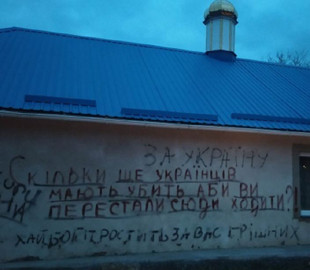 ЗА УКРАЇНУ
СКІЛЬКИ ЩЕ УКРАЇНЦІВ
МАЮТЬ УБИТЬ АБИ ВИ
ПЕРЕСТАЛИ СЮДИ ХОДИТИ?!
ХАЙ БОГ ПРОСТИТЬ ЗА ВАС ГРІШНИХ